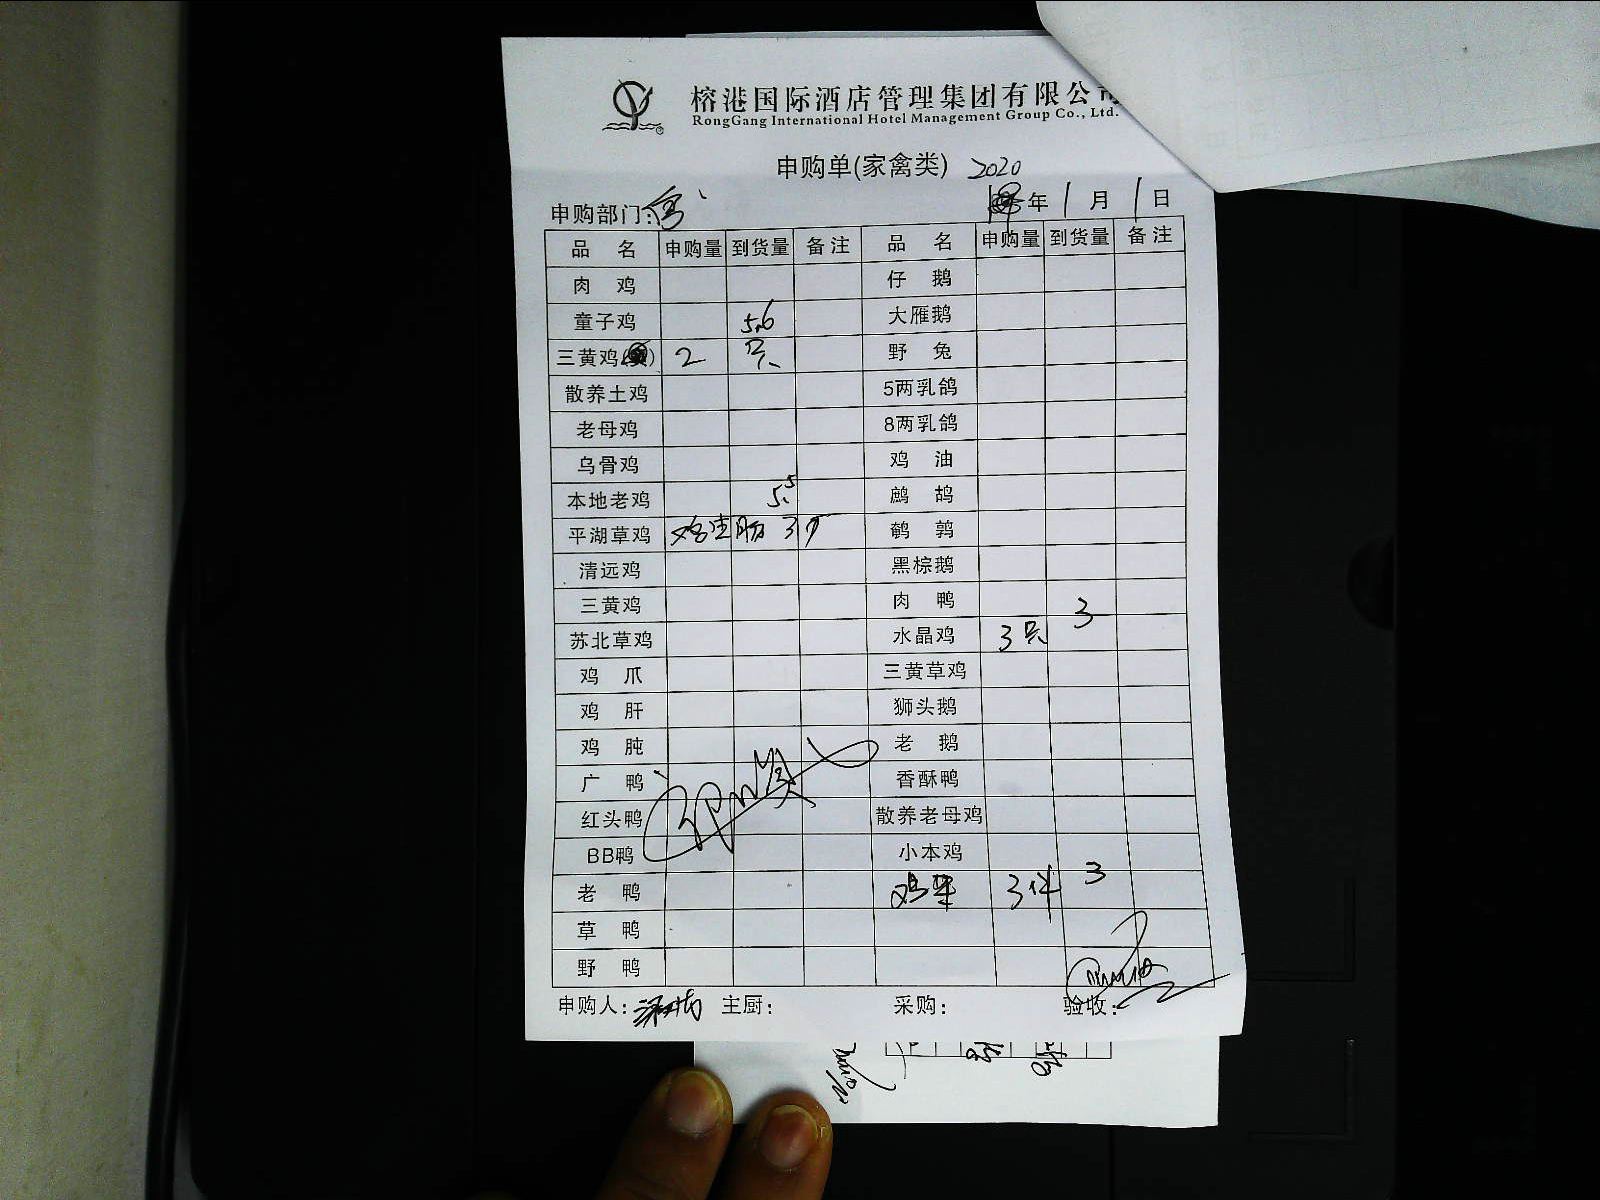 榕港国际酒店管理集团有限公司
RongGang International Hotel Management Group Co., Ltd.
申购单(家禽类) 2020
申购部门: 年 1 月 1 日
品 名 申购量 到货量 备注 品 名 申购量 到货量 备注
肉 鸡 仔 鹅
童子鸡 5.6 大雁鹅
三黄鸡 2 只 野 兔
散养土鸡 5两乳鸽
老母鸡 8两乳鸽
乌骨鸡 鸡 油
本地老鸡 5.5 鹧 鸪
平湖草鸡 鸡 3 鹌 鹑
清远鸡 黑棕鹅
三黄鸡 肉 鸭
苏北草鸡 水晶鸡 3只 3
鸡 爪 三黄草鸡
鸡 肝 狮头鹅
鸡 肫 老 鹅
广 鸭 香酥鸭
红头鸭 散养老母鸡
BB鸭 小本鸡
老 鸭 鸡 3 3
草 鸭
野 鸭
申购人: 主厨: 采购: 验收: